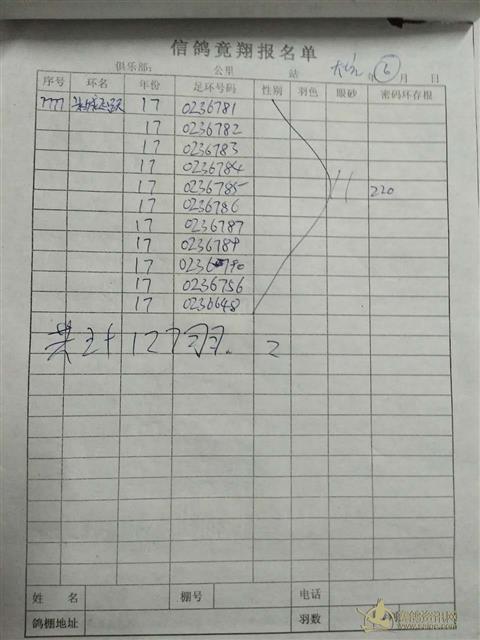 信鸽竟翔报名单
俱乐部: 公里 站 年 6 月 日
序号 环名 年份 足环号码 性别 羽色 眼砂 密码环存根
7777 17 0236781
17 0236782
17 0236783
17 0236784
17 0236785 11 220
17 0236786
17 0236787
17 0236789
17 0236790
17 0236756
17 0236648
共计 127羽. 2
姓 名 棚号 电话
鸽棚地址 羽数